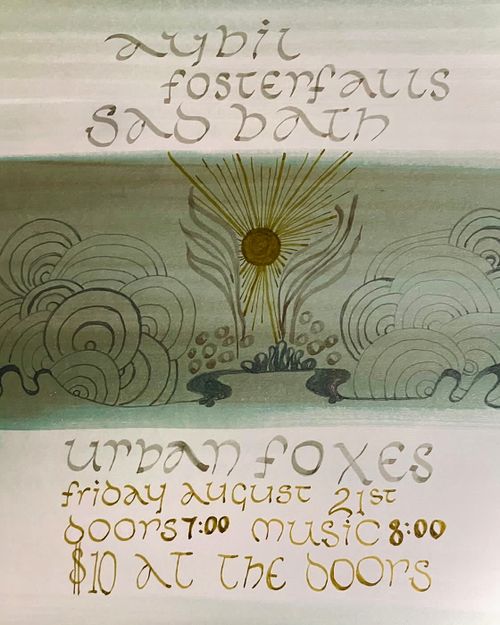 aybil
fosterfalls
sad bath
urban foxes
friday august 21st
doors 7:00 music 8:00
$10 at the doors